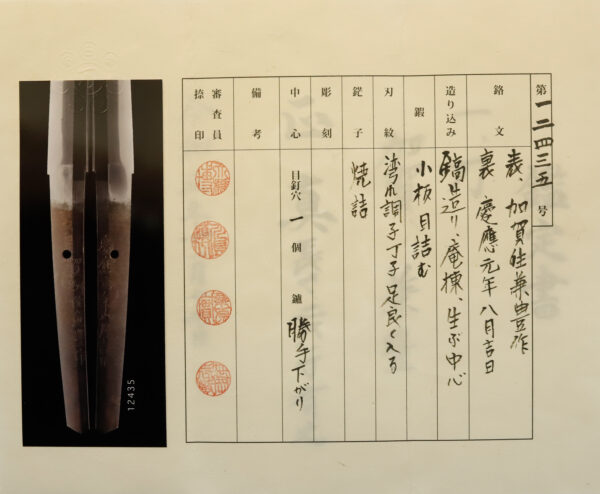 第一二四三五号
銘文 表、加賀住兼豊作
裏 慶應元年八月吉日
造り込み 鎬造り、庵棟、生ぶ中心
鍛 小板目詰む
刃紋 湾れ調子丁子足良く入る
鋩子 焼詰
彫刻
中心 目釘穴 一 個 鑢 勝手下がり
備考
審査員捺印
12435